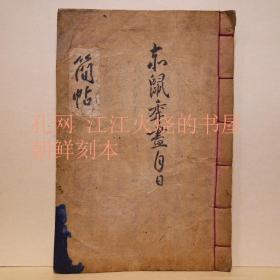 赤鼠季書月日
簡帖
孔网 江江火烧的书屋
朝鲜刻本